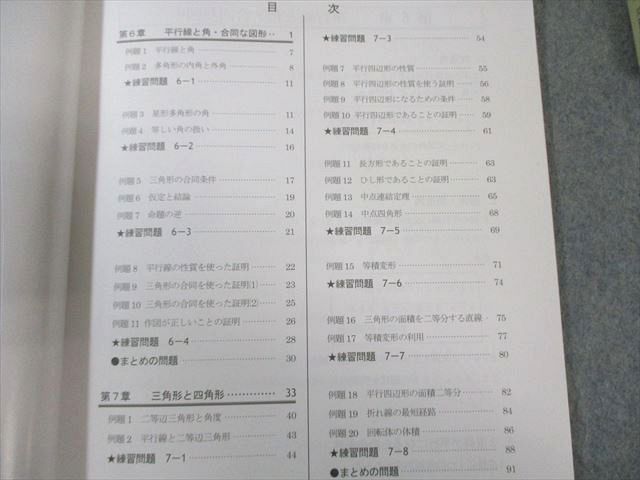 目 次
第6章 平行線と角・合同な図形‥ 1
例題1 平行線と角 ………………… 7
例題2 多角形の内角と外角 ………… 8
★練習問題 6−1 ………………… 11
例題3 星形多角形の角 …………… 11
例題4 等しい角の扱い …………… 14
★練習問題 6−2 ………………… 16
例題5 三角形の合同条件 ………… 17
例題6 仮定と結論 ………………… 19
例題7 命題の逆 …………………… 20
★練習問題 6−3 ………………… 21
例題8 平行線の性質を使った証明 …… 22
例題9 三角形の合同を使った証明(1) … 23
例題10 三角形の合同を使った証明(2) … 25
例題11 作図が正しいことの証明 …… 26
★練習問題 6−4 ………………… 28
●まとめの問題 …………………… 30
第7章 三角形と四角形 ………… 33
例題1 二等辺三角形と角度 ……… 40
例題2 平行線と二等辺三角形 …… 43
★練習問題 7−1 ………………… 44
★練習問題 7−3 ………………… 54
例題7 平行四辺形の性質 ………… 55
例題8 平行四辺形の性質を使う証明 … 56
例題9 平行四辺形になるための条件 … 58
例題10 平行四辺形であることの証明 … 59
★練習問題 7−4 ………………… 61
例題11 長方形であることの証明 …… 63
例題12 ひし形であることの証明 …… 63
例題13 中点連結定理 ……………… 65
例題14 中点四角形 ………………… 68
★練習問題 7−5 ………………… 69
例題15 等積変形 …………………… 71
★練習問題 7−6 ………………… 74
例題16 三角形の面積を二等分する直線‥ 75
例題17 等積変形の利用 …………… 77
★練習問題 7−7 ………………… 80
例題18 平行四辺形の面積二等分 …… 82
例題19 折れ線の最短経路 ………… 84
例題20 回転体の体積 ……………… 86
★練習問題 7−8 ………………… 88
●まとめの問題 …………………… 91